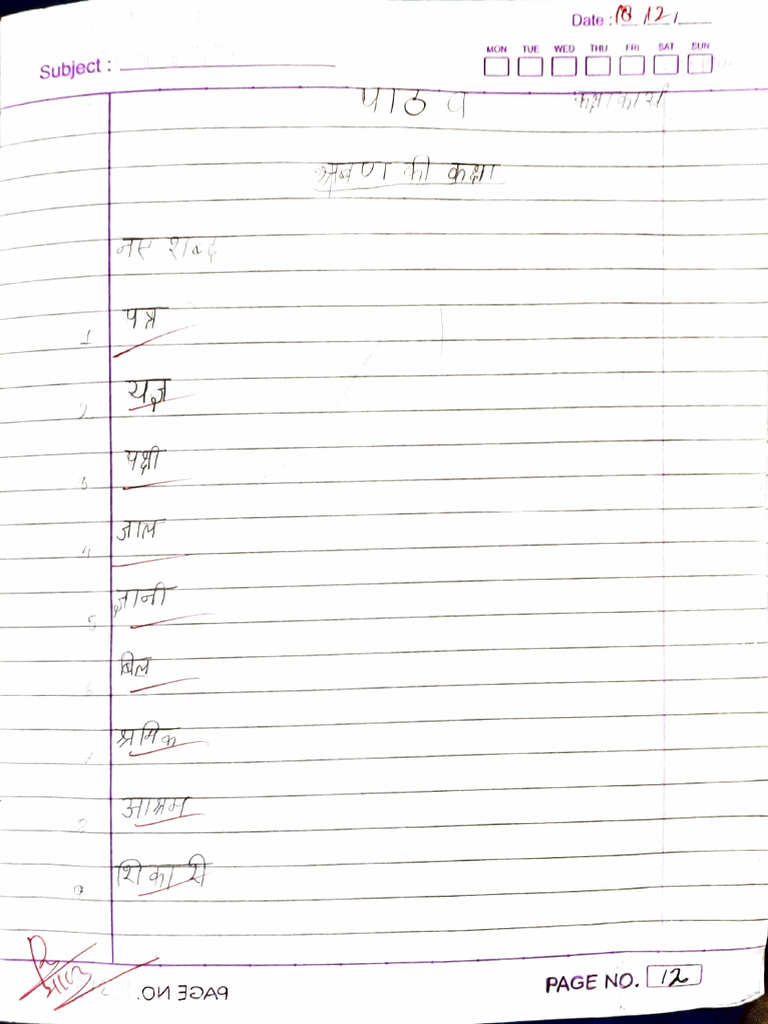 Date : 18.12.
MON TUE WED THU FRI SAT SUN
Subject :
पाठ व कक्षाकार्य
श्रबण की कक्षा
नए शब्द
1 पत्र
2 यज्ञ
3 पक्षी
4 जाल
5 ज्ञानी
6 बिल
7 श्रमिक
8 आश्रम
9 शिकारी
PAGE NO.
PAGE NO. 12